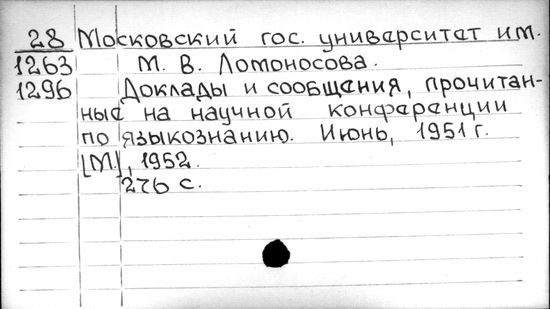 28 Московский гос. университет им.
1263 М. В. Ломоносова.
1296 Доклады и сообщения, прочитан-
ные на научной конференции
по языкознанию. Июнь, 1951 г.
[М.], 1952.
276 с.